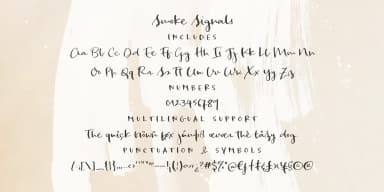 Smoke Signals
INCLUDES
Aa Bb Cc Dd Ee Ff Gg Hh Ii Jj Kk Ll Mm Nn
Oo Pp Qq Rr Ss Tt Uu Vv Ww Xx Yy Zz
NUMBERS
0123456789
MULTILINGUAL SUPPORT
The quick brown fox jumped over the lazy dog
PUNCTUATION & SYMBOLS